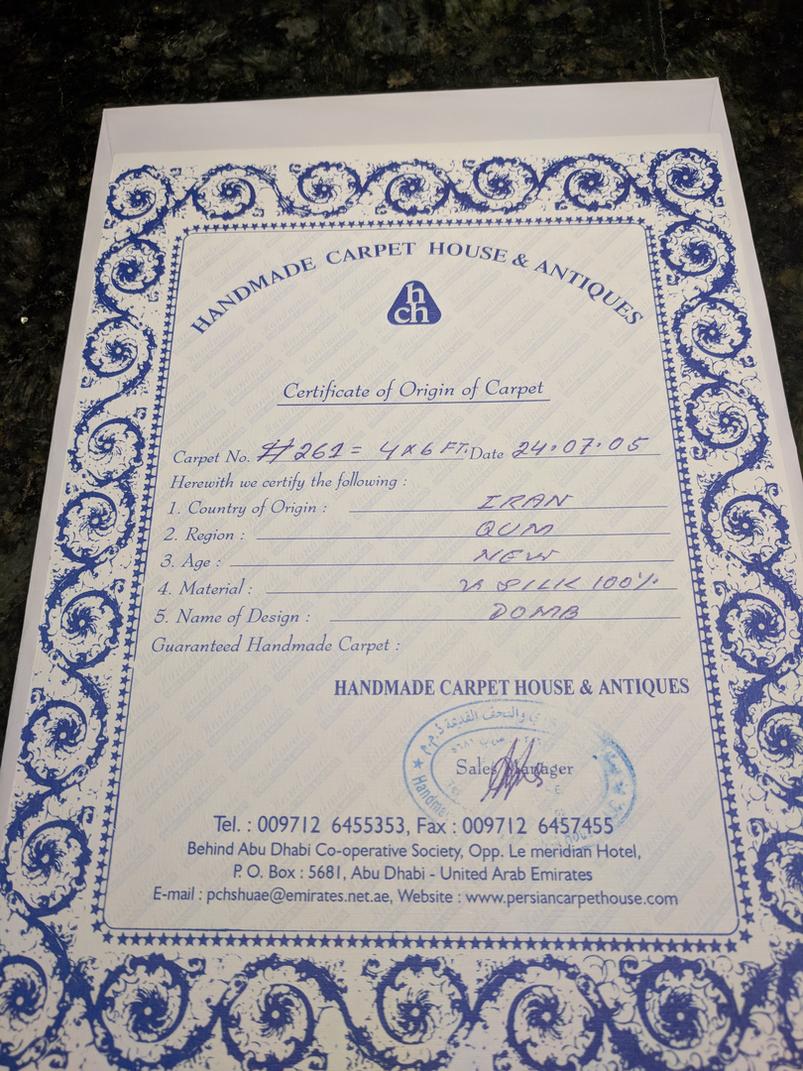 HANDMADE CARPET HOUSE & ANTIQUES
h
ch
Certificate of Origin of Carpet
Carpet No. # 261 = 4 x 6 FT. Date 24.07.05
Herewith we certify the following :
1. Country of Origin : IRAN
2. Region : QUM
3. Age : NEW
4. Material : SILK 100%
5. Name of Design : DOMB
Guaranteed Handmade Carpet :
HANDMADE CARPET HOUSE & ANTIQUES
والتحف القديمة ذ.م.م
Sales Manager
Tel. : 009712 6455353, Fax : 009712 6457455
Behind Abu Dhabi Co-operative Society, Opp. Le meridian Hotel,
P. O. Box : 5681, Abu Dhabi - United Arab Emirates
E-mail : pchshuae@emirates.net.ae, Website : www.persiancarpethouse.com